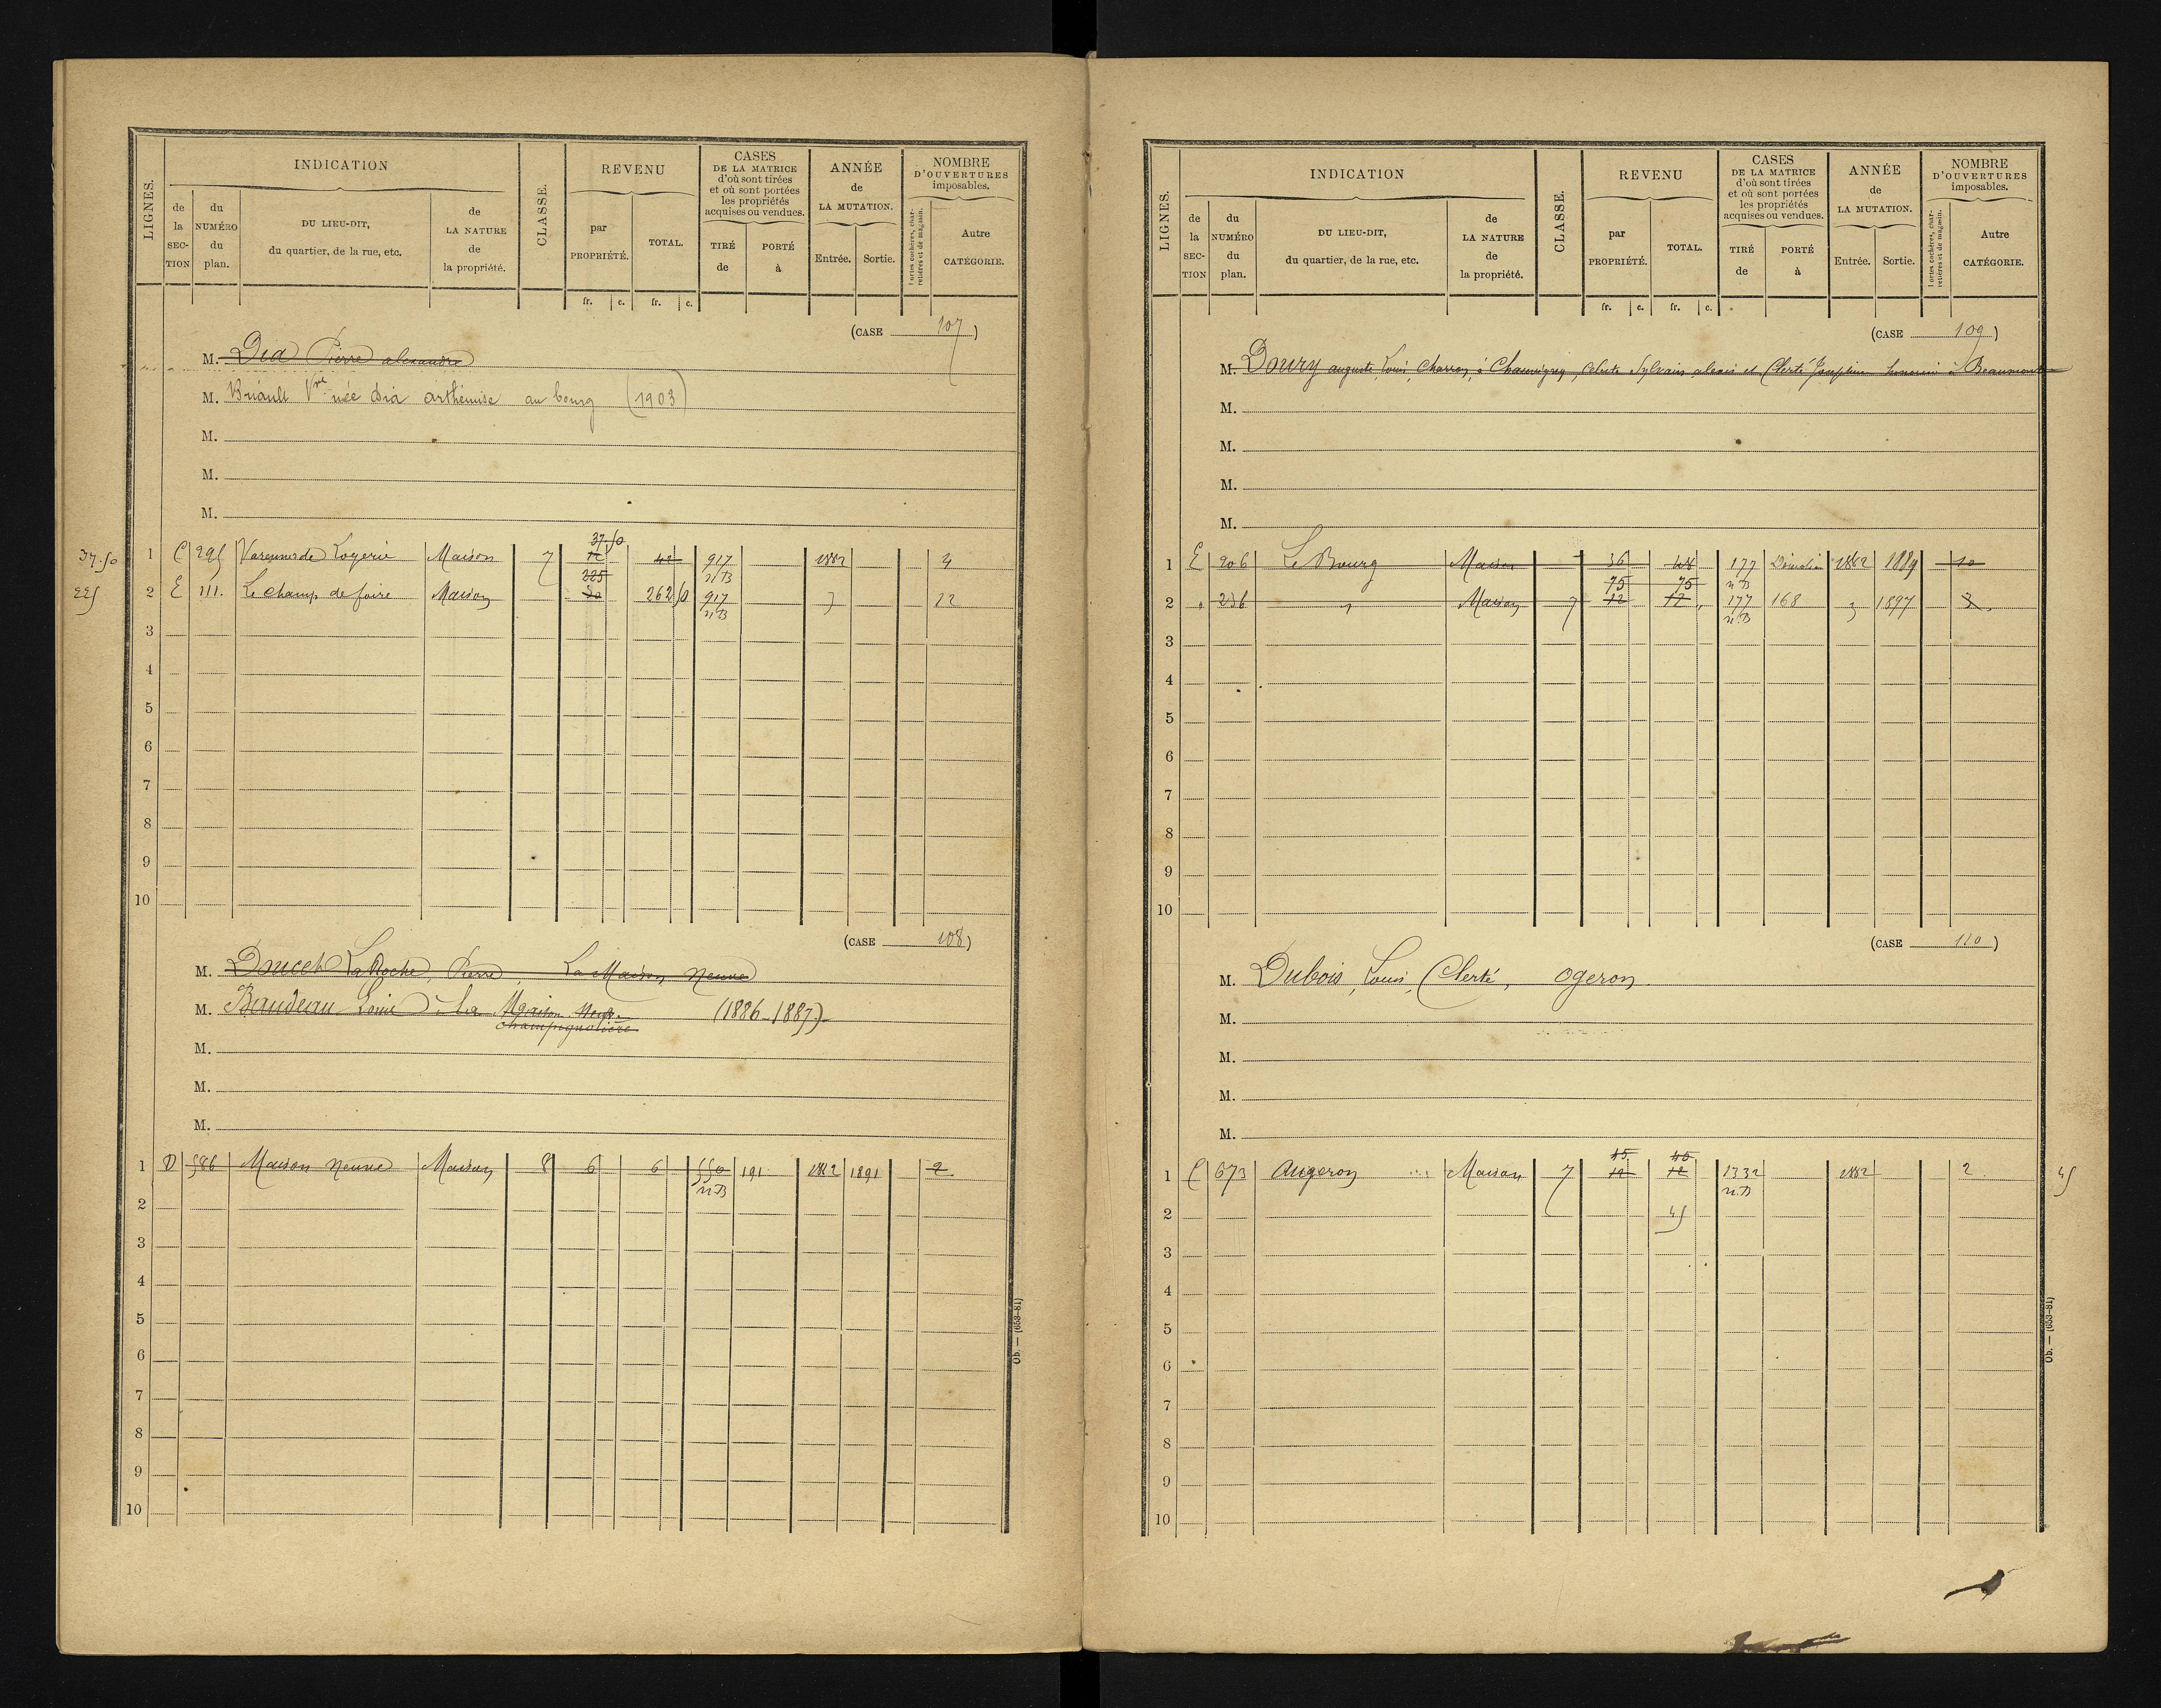 LIGNES.
INDICATION
de la SECTION
du NUMÉRO du plan.
DU LIEU-DIT, du quartier, de la rue, etc.
de LA NATURE de la propriété.
CLASSE.
REVENU
par PROPRIÉTÉ.
TOTAL.
CASES DE LA MATRICE d'où sont tirées et où sont portées les propriétés acquises ou vendues.
TIRÉ de
PORTÉ à
ANNÉE de LA MUTATION.
Entrée.
Sortie.
NOMBRE D'OUVERTURES imposables.
Portes cochères, charretières et de magasin.
Autre CATÉGORIE.
fr. c. fr. c.
(CASE 107)
M. Dia Pierre alexandre
M. Briault Vve née Dia arthémise au bourg (1903)
M.
M.
M.
37.50
37.50 1 C 295 Varennes de Logerie Maison 7 42 917 1882 4
n.B
225
225 2 E 111. Le champ de foire Maison 262 50 917 12
n.B
3
4
5
6
7
8
9
10
(CASE 108)
M. Doucet LaRoche, Pierre, La Maison Neuve
M. Baudeau Louis à la Maison Neuve (1886-1887)
champignolière
M.
M.
M.
1 D 586 Maison Neuve Maison 8 6 6 550 191 1882 1891 2
n.B
2
3
4
5
6
7
8
9
10
Ob. — (653-81)
LIGNES.
INDICATION
de la SECTION
du NUMÉRO du plan.
DU LIEU-DIT, du quartier, de la rue, etc.
de LA NATURE de la propriété.
CLASSE.
REVENU
par PROPRIÉTÉ.
TOTAL.
CASES DE LA MATRICE d'où sont tirées et où sont portées les propriétés acquises ou vendues.
TIRÉ de
PORTÉ à
ANNÉE de LA MUTATION.
Entrée.
Sortie.
NOMBRE D'OUVERTURES imposables.
Portes cochères, charretières et de magasin.
Autre CATÉGORIE.
fr. c. fr. c.
(CASE 109)
M. Doury auguste, Louis, Charron, à Chauvigny, Sylvain alexis et Clerté Joséphine à Beaumont
M.
M.
M.
M.
1 E 206 Le Bourg Maison 36 48 177 1882 1889 10
75 75 n.B
2 " 236 " Maison 7 12 12 177 168 " 1897 3
n.B
3
4
5
6
7
8
9
10
(CASE 110)
M. Dubois, Louis, Clerté, Ogeron
M.
M.
M.
M.
45 45
1 C 673 Augeron Maison 7 12 12 1332 1882 2 45
n.B
2 45
3
4
5
6
7
8
9
10
Ob. — (653-81)